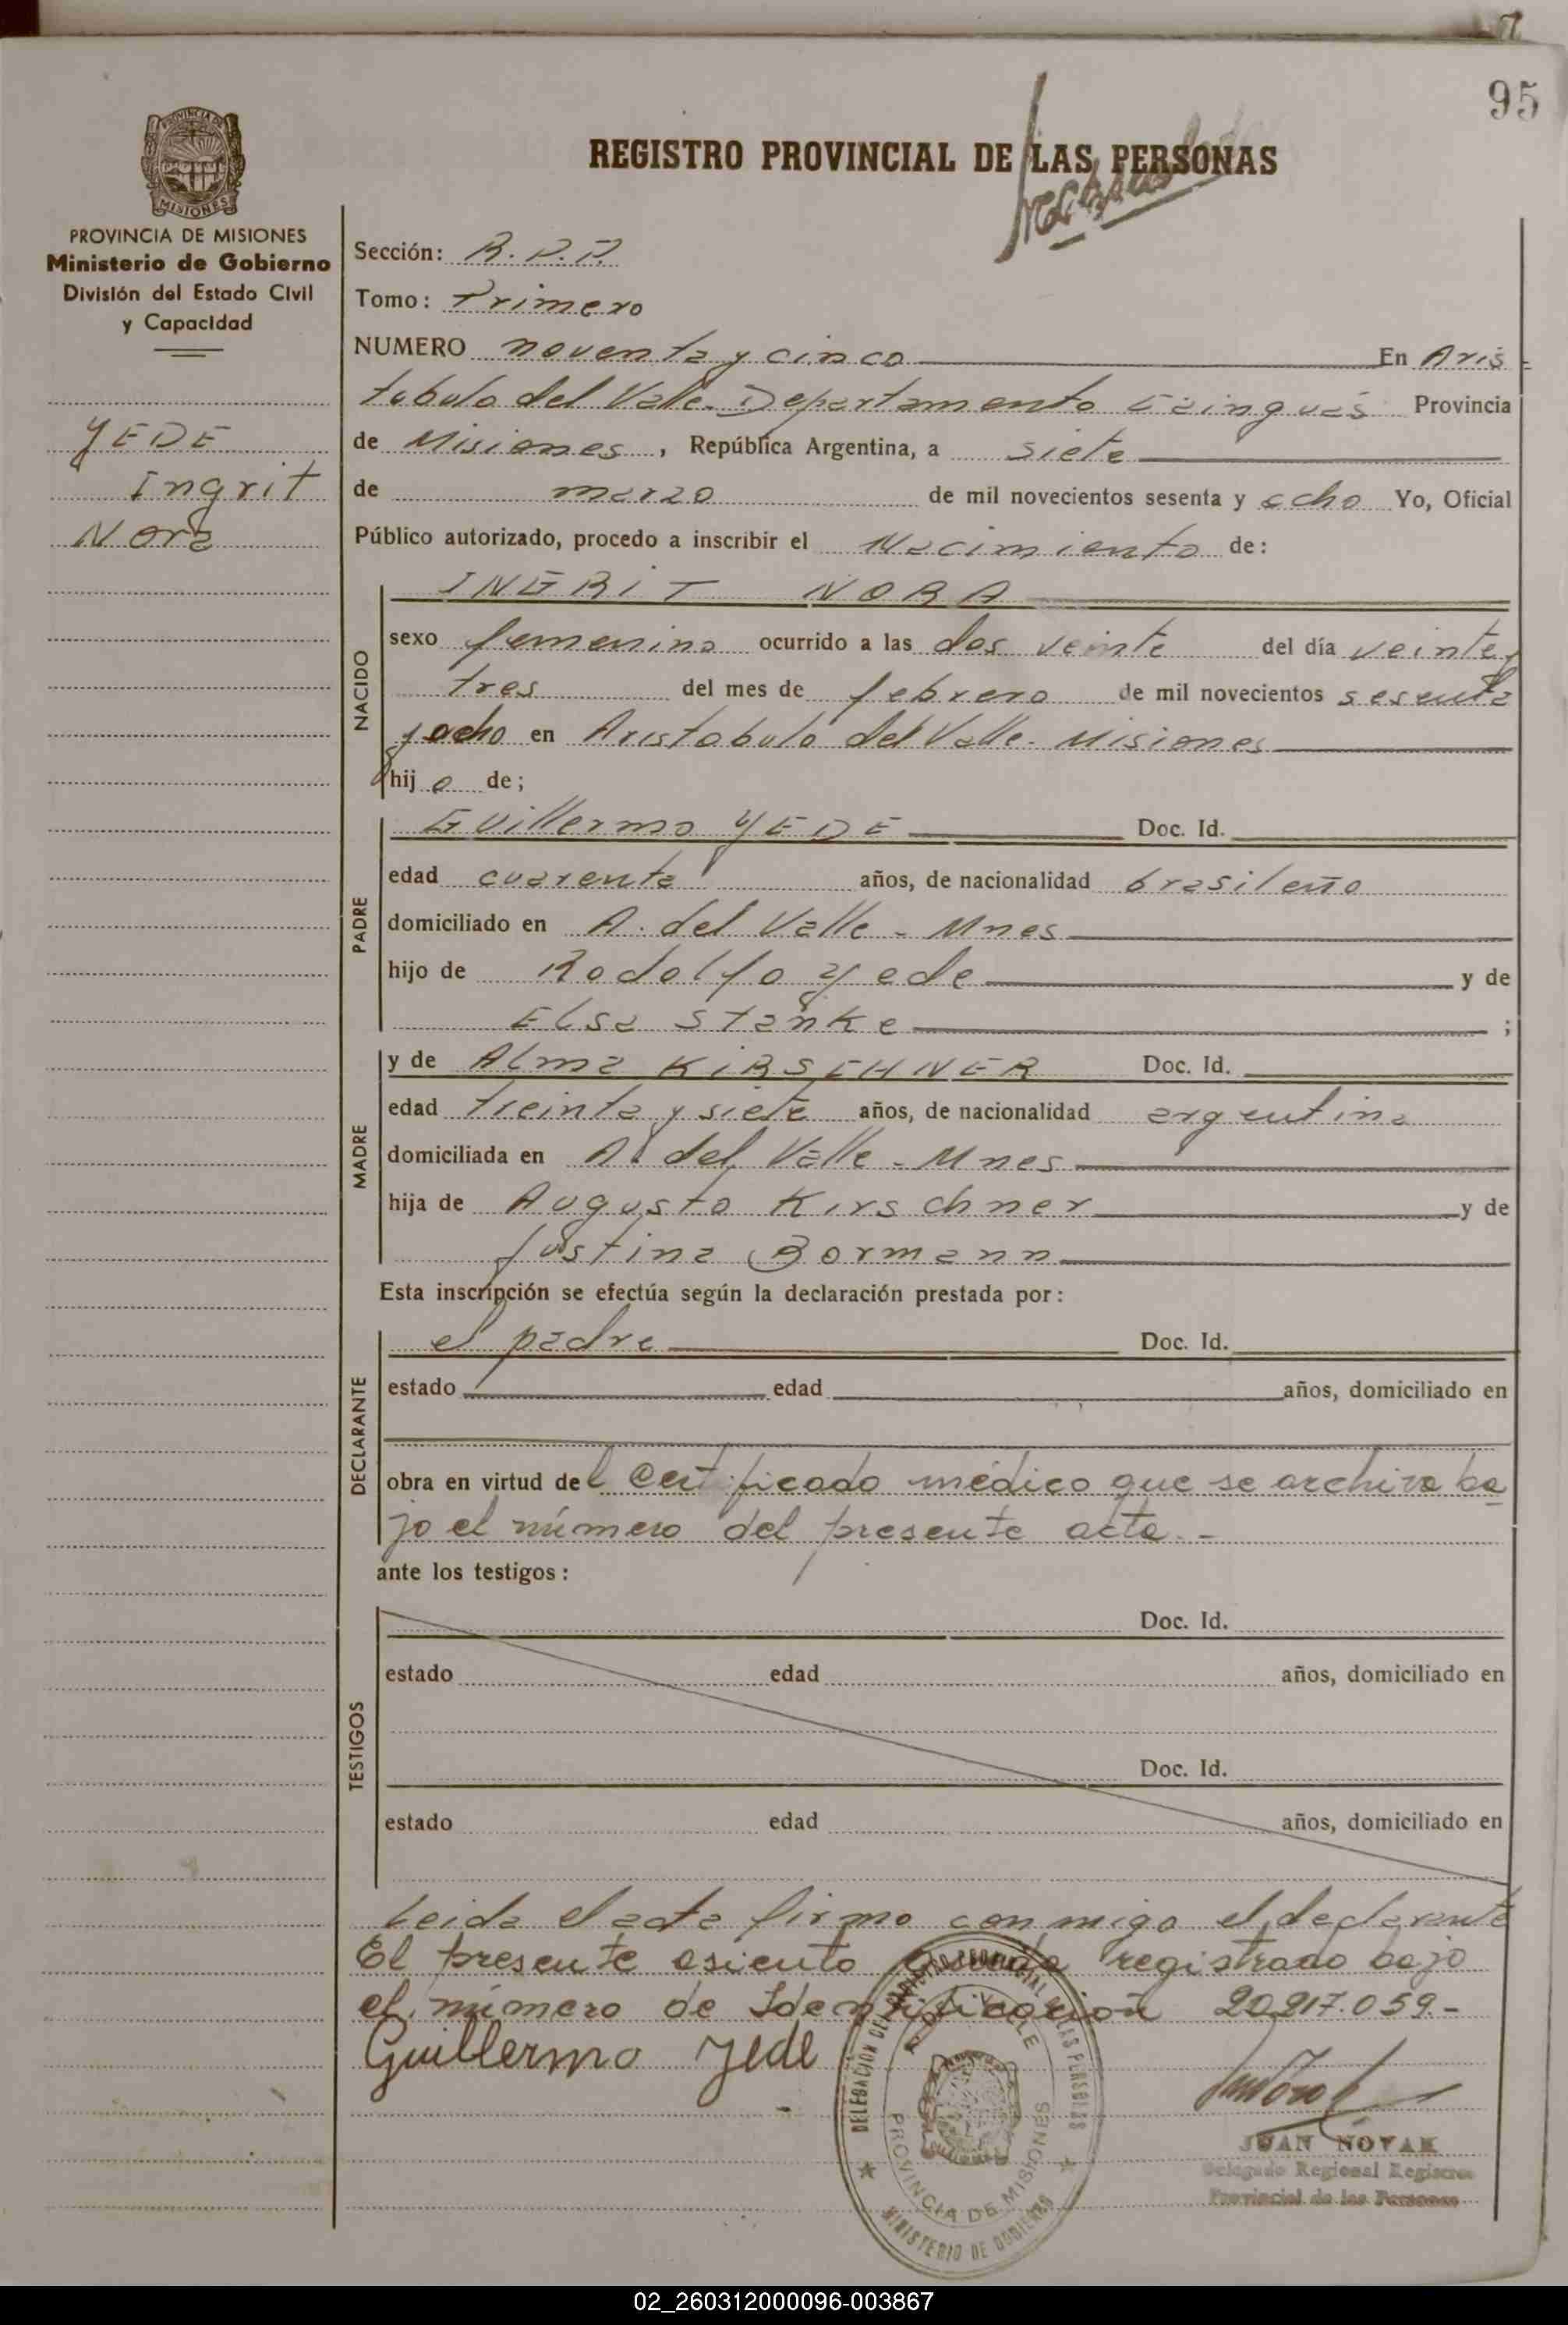 95
REGISTRO PROVINCIAL DE LAS PERSONAS
PROVINCIA DE
MISIONES
PROVINCIA DE MISIONES
Ministerio de Gobierno
División del Estado Civil
y Capacidad
YEDE
Ingrit
Nora
Sección: R.P.P.
Tomo: Primero
NUMERO noventa y cinco En Aris
tobulo del Valle. Departamento Cainguás Provincia
de Misiones, República Argentina, a siete
de marzo de mil novecientos sesenta y ocho Yo, Oficial
Público autorizado, procedo a inscribir el Nacimiento de:
NACIDO
INGRIT NORA
sexo femenino ocurrido a las dos veinte del día veinte y
tres del mes de febrero de mil novecientos sesenta
y ocho en Aristobulo del Valle - Misiones
hij a de;
PADRE
Guillermo YEDE Doc. Id.
edad cuarenta años, de nacionalidad brasileño
domiciliado en A. del Valle - Mnes
hijo de Rodolfo Yede y de
Elsa Stanke ;
MADRE
y de Alma KIRSCHNER Doc. Id.
edad treinta y siete años, de nacionalidad argentina
domiciliada en A. del Valle - Mnes
hija de Augusto Kirschner y de
Justina Bormann
Esta inscripción se efectúa según la declaración prestada por:
DECLARANTE
el padre Doc. Id.
estado edad años, domiciliado en
obra en virtud del Certificado médico que se archiva ba
jo el número del presente acta.-
ante los testigos:
TESTIGOS
Doc. Id.
estado edad años, domiciliado en
Doc. Id.
estado edad años, domiciliado en
Leida el acta firmo conmigo el declarante
El presente asiento queda registrado bajo
el número de Identificación 20.217.059.-
Guillermo Yede
DELEGACION DEL REGISTRO PROVINCIAL DE LAS PERSONAS
A. DEL VALLE
PROVINCIA DE MISIONES
MINISTERIO DE GOBIERNO
JUAN NOVAK
Delegado Regional Registro
Provincial de las Personas
02_260312000096-003867